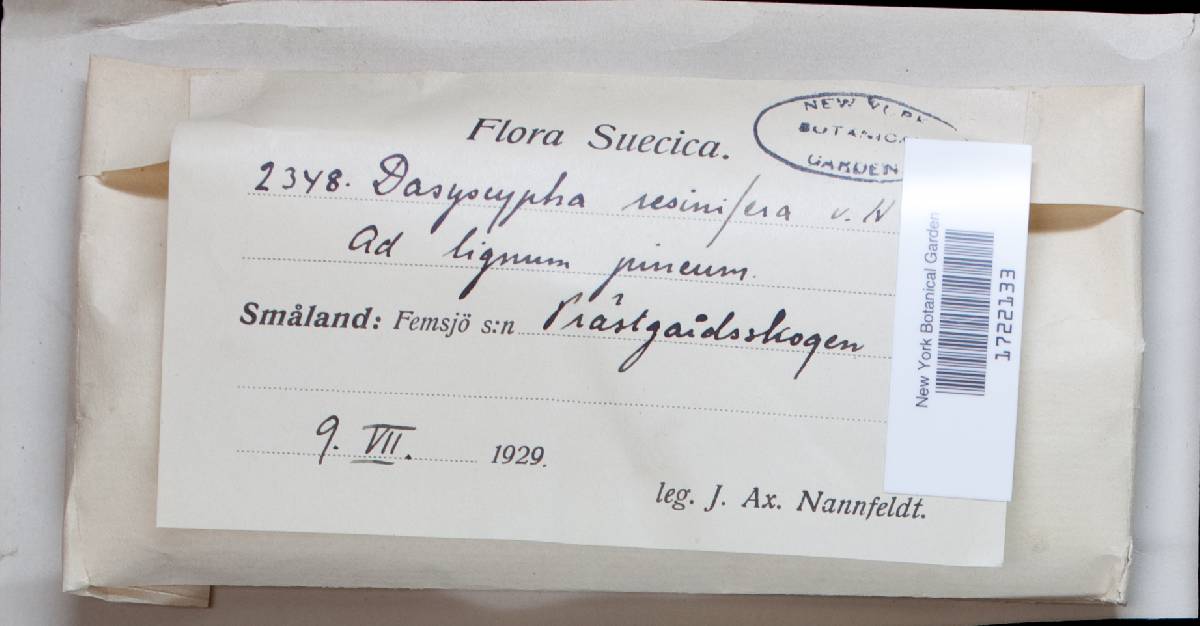 Flora Suecica.
NEW YORK
BOTANIC
GARDEN
2348. Dasyscypha resinifera v. H
Ad lignum pineum.
Småland: Femsjö s:n Prästgårdsskogen
9. VII. 1929.
leg. J. Ax. Nannfeldt.
New York Botanical Garden
1722133